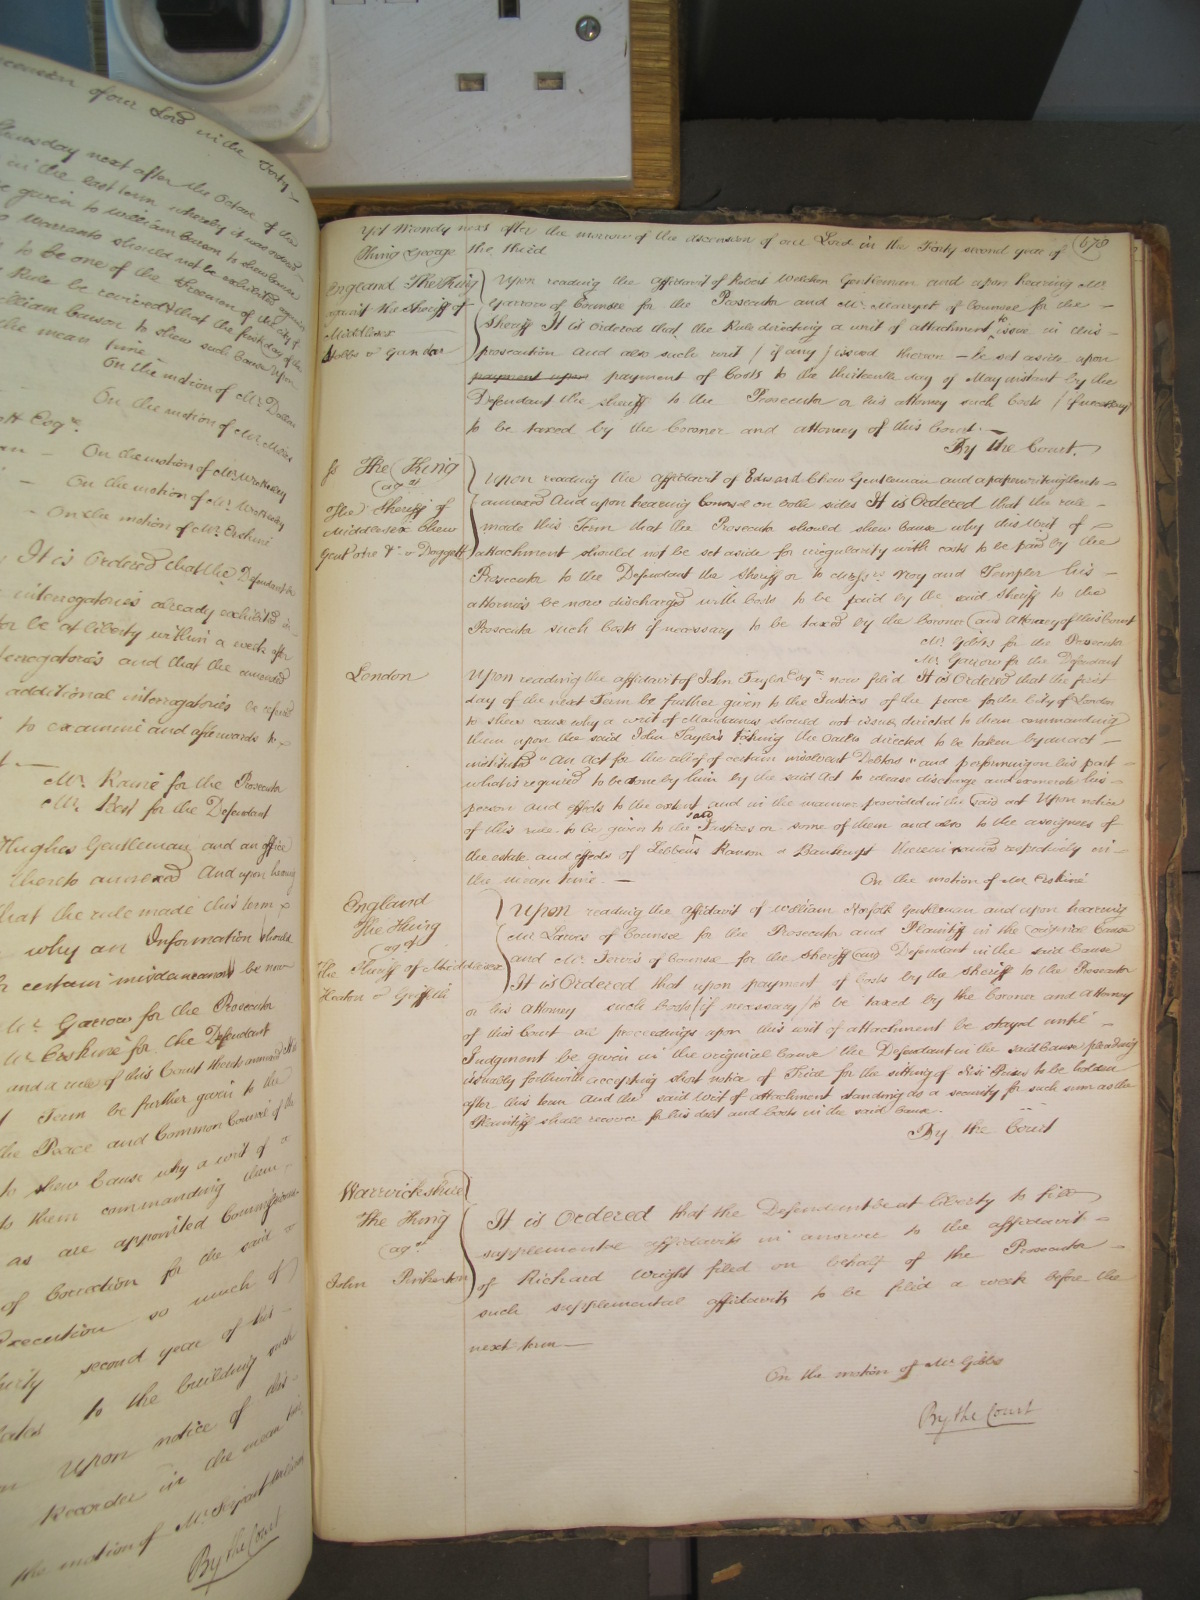 ascension of our Lord in the Forty
Thursday next after the Octave of the
in the last term whereby it was ordered
given to William Bacon to shew Cause
Warranto should not be exhibited against
to be one of the Freemen of the City of
Rule be revived that the first day of the
William bacon to shew such Cause Upon
the mean time
On the motion of Mr. Dallas
On the motion of Mr.
Esqr.
On the motion of Mr.
On the motion of Mr.
On the motion of Mr. Erskine
It is Ordered that the Defendant
interrogatories already exhibited
be at liberty within a week after
interrogatories and that the
additional interrogatories be
to examine and afterwards to
Mr. Raine for the Prosecutor
Mr. Best for the Defendant
Hughes Gentleman and an office
thereto annexed And upon hearing
that the rule made this term
why an Information should
certain misdemeanors be now
Mr. Garrow for the Prosecutor
Mr. Erskine for the Defendant
and a rule of this Court thereto annexed It is
Term be further given to the
the Peace and Common Council of the
to shew Cause why a writ of
to them commanding them
as are appointed Commissioners
of Correction for the said
Execution so much of
second year of his
to the building
Upon notice of this
Recorder in the mean time
the motion of Mr. Serjeant
By the Court
Yet Monday next after the morrow of the ascension of our Lord in the Forty second year of 670
King George the third
England The King
against the Sheriff of
Middlesex
Hobbs v Gandar
Upon reading the affidavit of Robert Gentleman and upon hearing Mr.
Garrow of Counsel for the Prosecutor and Mr. Marryat of Counsel for the
Sheriff It is Ordered that the Rule directing a writ of attachment to issue in this
prosecution And also such writ (if any) issued thereon be set aside upon
payment upon payment of Costs to the thirteenth day of May instant by the
Defendant the sheriff to the Prosecutor or his attorney such costs (if necessary)
to be taxed by the Coroner and attorney of this Court.
By the Court.
The King
agst
The Sheriff of
Middlesex
Gent one &c v Doggett
Upon reading the affidavit of Edward Gentleman and a paper writing thereto
annexed And upon hearing Counsel on both sides It is Ordered that the rule
made this Term that the Prosecutor should shew Cause why this Writ of
attachment should not be set aside for irregularity with costs to be paid by the
Prosecutor to the Defendant the Sheriff or to Messrs. Roy and Templer his
attornies be now discharged with Costs to be paid by the said Sheriff to the
Prosecutor such Costs if necessary to be taxed by the Coroner and Attorney of this Court
Mr. Gibbs for the Prosecutor
Mr. Garrow for the Defendant
London
Upon reading the affidavit of John Taylor Esqr. now filed It is Ordered that the first
day of the next Term be further given to the Justices of the peace for the City of London
to shew cause why a writ of Mandamus should not issue directed to them commanding
them upon the said John Taylor's taking the oaths directed to be taken by an act
intituled "An act for the relief of certain insolvent Debtors" and performing on his part
what is required to be done by him by the said Act to release discharge and exonerate his
person and effects to the extent and in the manner provided in the said act Upon notice
of this rule to be given to the said Justices or some of them and also to the assignees of
the estate and effects of Ranson a Bankrupt therein named respectively in
the mean time.
On the motion of Mr. Erskine
England
The King
agst
The Sheriff of Middlesex
Heaton v Griffith
Upon reading the affidavit of William Norfolk Gentleman and upon hearing
Mr. Lawes of Counsel for the Prosecutor and Plaintiff in the original Cause
and Mr. Jervis of Counsel for the Sheriff and Defendant in the said Cause
It is Ordered that upon payment of Costs by the Sheriff to the Prosecutor
or his Attorney such Costs (if necessary) to be taxed by the Coroner and Attorney
of this Court all proceedings upon this writ of attachment be stayed until
Judgment be given in the original Cause the Defendant in the said Cause pleading
issuably forthwith accepting short notice of Trial for the sitting of Nisi Prius to be holden
after this term And the said Writ of attachment standing as a security for such sum as the
Plaintiff shall recover for his debt and Costs in the said Cause.
By the Court
Warwickshire
The King
agst
John Pinkerton
It is Ordered that the Defendant be at liberty to file
supplemental affidavits in answer to the affidavit
of Richard Wright filed on behalf of the Prosecutor
such supplemental affidavits to be filed a week before the
next term
On the motion of Mr. Gibbs
By the Court